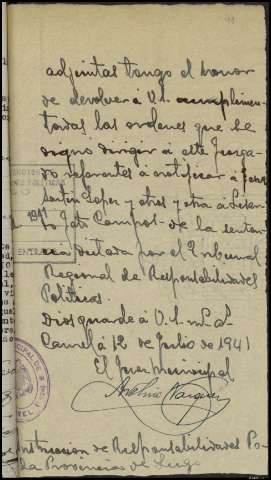 adjuntas tengo el honor
de devolver á V.I. cumplimen-
tadas las ordenes que se
digno dirigir á este Juzga-
do referentes á notificar á
Lopez y otros y otra á
Campos de la senten-
cia dictada por el Tribunal
Regional de Responsabilidades
Politicas.
Dios guarde á V.I. m. a.
á 12 de Julio de 1941
El Juez municipal
1941
ENTRADA
de Responsabilidades Po-
Provincia de Lugo